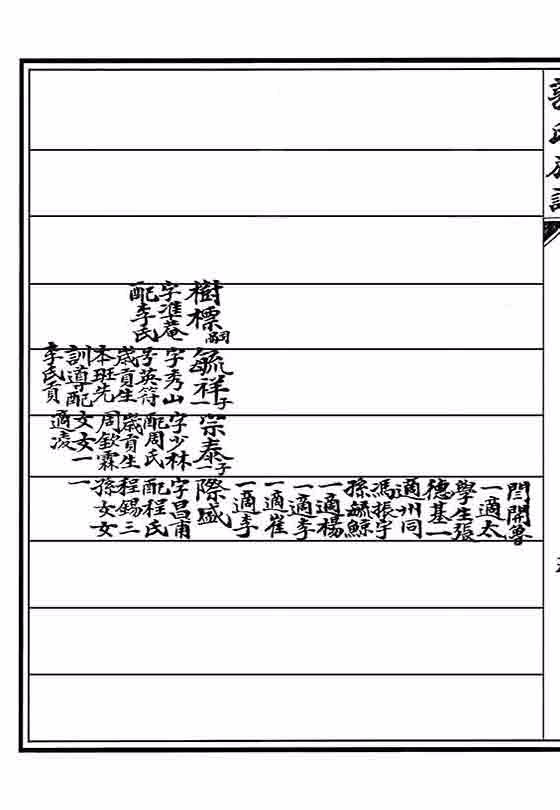 樹標嗣
字准菴
配李氏
毓祥子一
字秀山
號英符
歲貢生
本班先
訓導配
李氏貢
宗泰子一
字少林
配周氏
歲貢生
周欽霖
女女一
適凌
閆開曾
一適太
學生張
德基一
適州同
馮振宇
孫毓鯨
一適楊
一適李
一適崔
一適李
際盛
字昌甫
配程氏
程錫三
孫女女
一